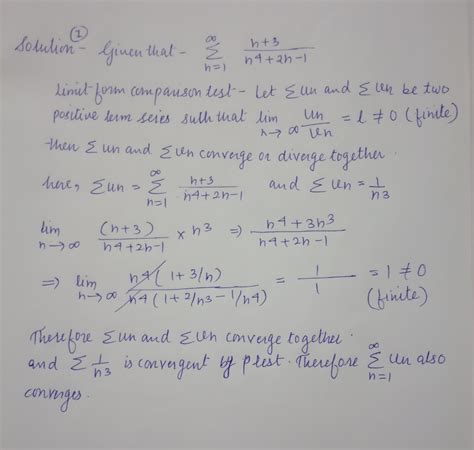 Solution①- Given that- ∑_{n=1}^{∞} (n+3)/(n⁴+2n-1)
Limit form comparison test- Let ∑un and ∑vn be two
positive term series such that lim_{n→∞} un/vn = l ≠ 0 (finite)
then ∑un and ∑vn converge or diverge together.
here, ∑un = ∑_{n=1}^{∞} (n+3)/(n⁴+2n-1) and ∑vn = 1/n³
lim_{n→∞} (n+3)/(n⁴+2n-1) × n³ ⇒ (n⁴+3n³)/(n⁴+2n-1)
⇒ lim_{n→∞} n⁴(1+3/n)/n⁴(1+2/n³-1/n⁴) = 1/1 = 1 ≠ 0
(finite)
Therefore ∑un and ∑vn converge together.
and ∑ 1/n³ is convergent by p test. Therefore ∑_{n=1}^{∞} un also
converges.